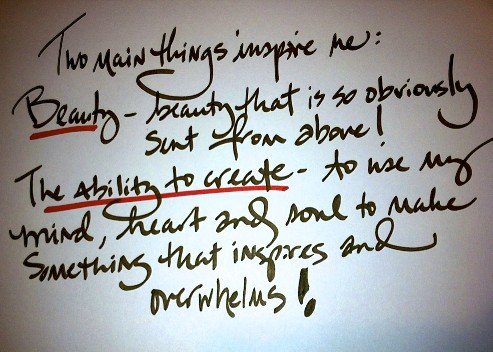 Two main things inspire me:
Beauty - beauty that is so obviously
sent from above!
The ability to create - to use my
mind, heart and soul to make
something that inspires and
overwhelms!